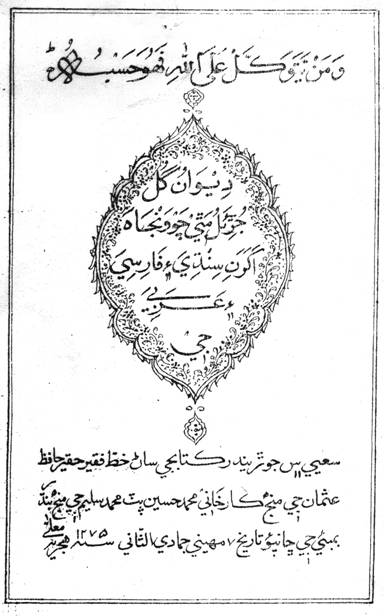 وَمَنْ يَتَوَكَّلْ عَلَى اللهِ فَهُوَ حَسْبُهُ
دِيوَانُ گُل
جُڙيلُ مَٿي چووَنجَاه
اکَرن سِنڌي ۽ فَارسِي
۽ عَرَبي
جي
سعيي سن جوڙيندر ڪتابجي ساڻ خطّ فقير حقير حافظ
عثمان جي منجھ ڪارخاني محمد حسين پٽ محمد سليم جي منجھ بندر
بمبئي جي ڇاپيو تاريخ ۷ مهيني جمادي الثّاني سنہ ۱۲۷۵ هجري